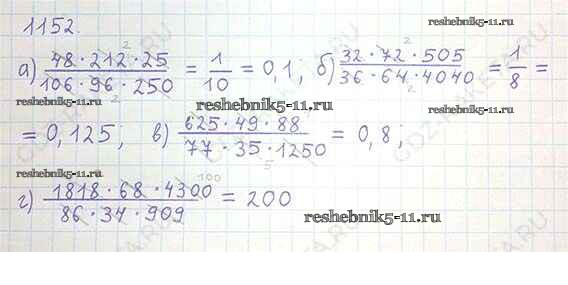 1152.
reshebnik5-11.ru
а) 48·212·25 / 106·96·250 = 1/10 = 0,1; б) 32·72·505 / 36·64·4040 = 1/8 =
reshebnik5-11.ru
reshebnik5-11.ru
= 0,125; в) 625·49·88 / 77·35·1250 = 0,8;
reshebnik5-11.ru
г) 1818·68·4300 / 86·34·909 = 200
reshebnik5-11.ru